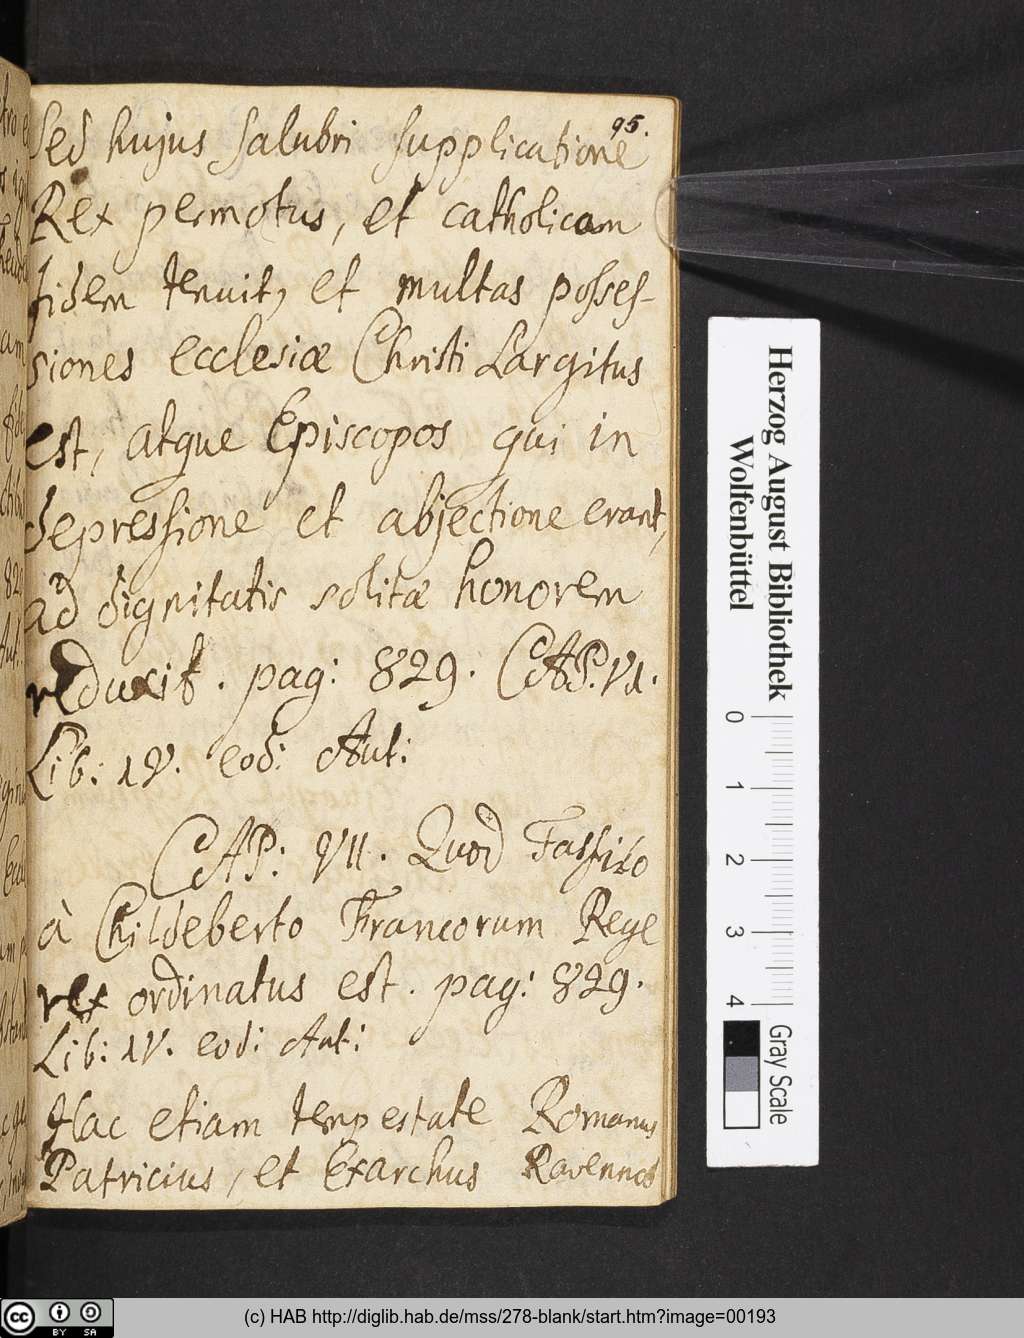 95.
Sed hujus salubri supplicatione
Rex permotus, et catholicam
fidem tenuit, et multas posses-
siones ecclesiæ Christi Largitus
est, atque Episcopos qui in
depressione et abjectione erant,
ad dignitatis solitæ honorem
reduxit. pag: 829. CAP. VI.
Lib: IV. eod: Aut:
CAP: VII. Quod Tassilo
à Childeberto Francorum Rege
rex ordinatus est. pag: 829.
Lib: IV. eod: Aut:
Hac etiam tempestate Romanus
Patricius, et Exarchus
Herzog August Bibliothek
Wolfenbüttel
0 1 2 3 4
Gray Scale
cc BY SA
(c) HAB http://diglib.hab.de/mss/278-blank/start.htm?image=00193